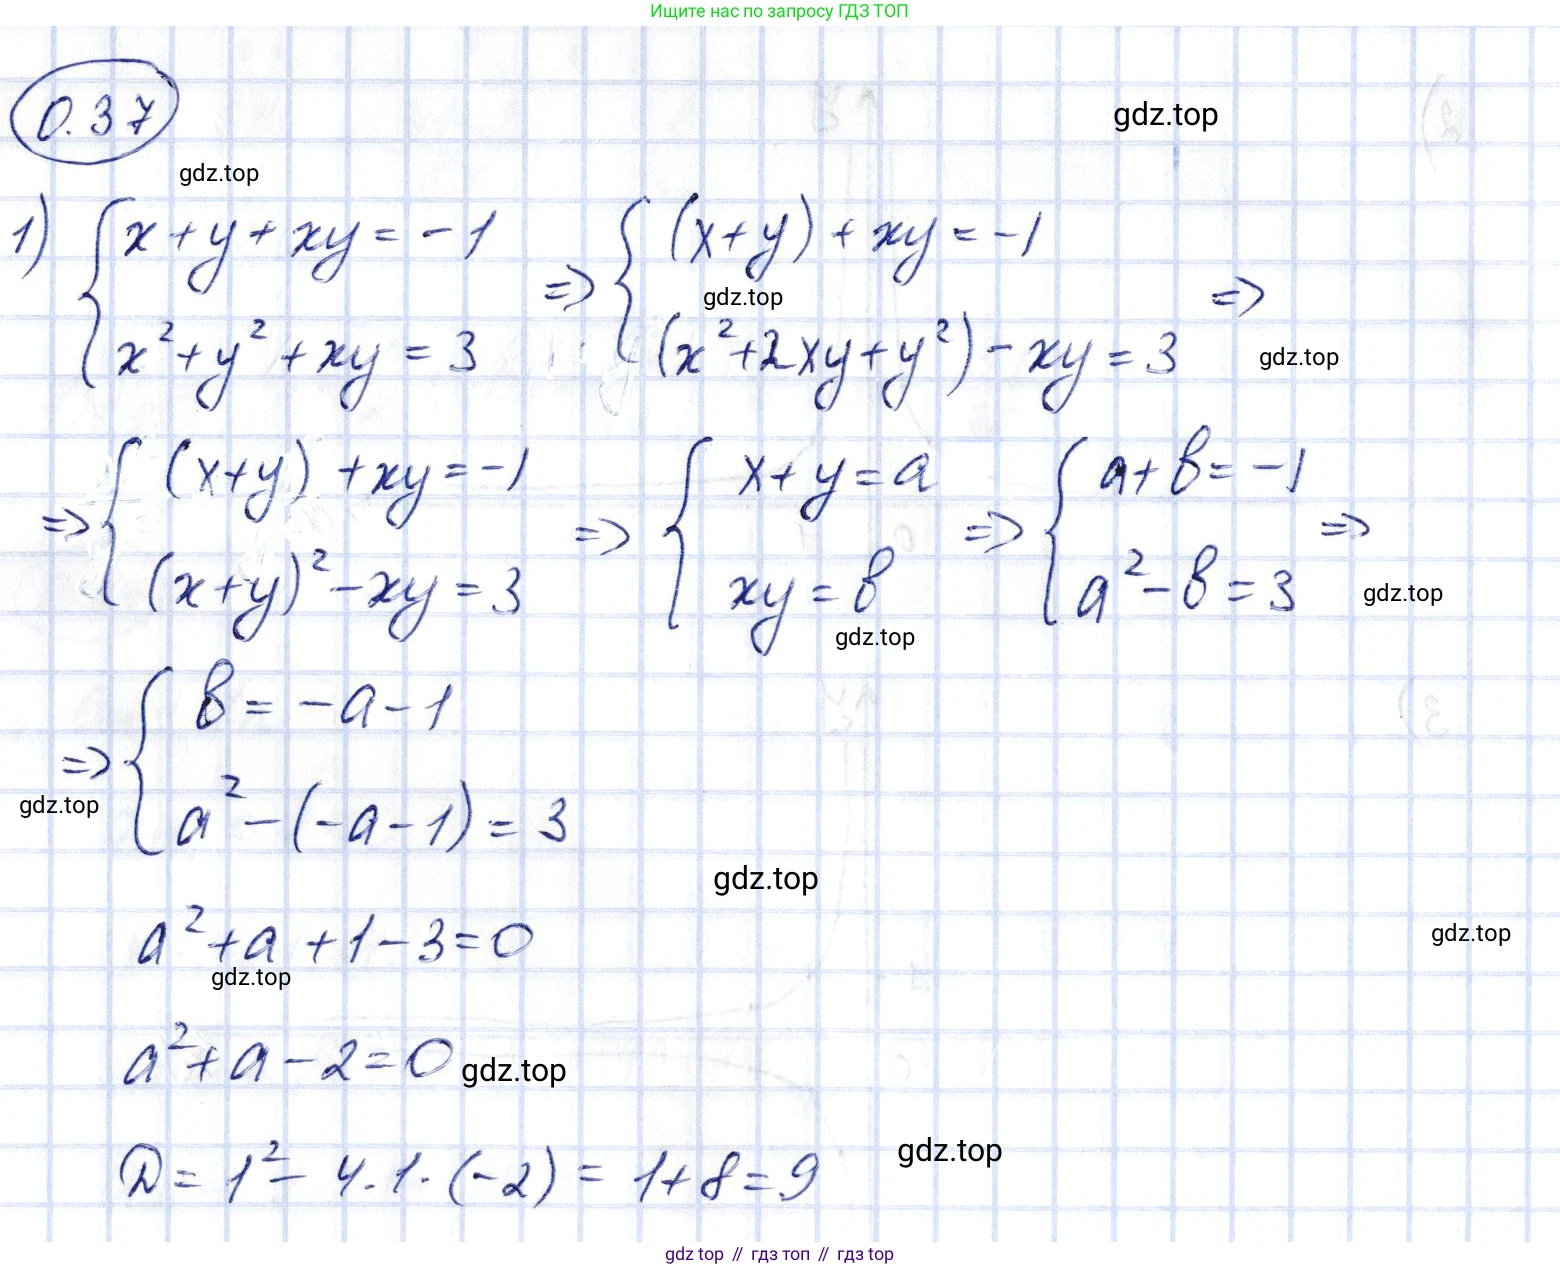 Ищите нас по запросу ГДЗ ТОП
0.37
gdz.top
gdz.top
1) { x + y + xy = -1 => { (x+y) + xy = -1 =>
x² + y² + xy = 3 (x² + 2xy + y²) - xy = 3
gdz.top
gdz.top
=> { (x+y) + xy = -1 => { x + y = a => { a + b = -1 =>
(x+y)² - xy = 3 xy = b a² - b = 3
gdz.top
gdz.top
=> { b = -a - 1
a² - (-a - 1) = 3
gdz.top
gdz.top
a² + a + 1 - 3 = 0
gdz.top
gdz.top
a² + a - 2 = 0
gdz.top
D = 1² - 4·1·(-2) = 1 + 8 = 9
gdz.top
gdz top // гдз топ // гдз top